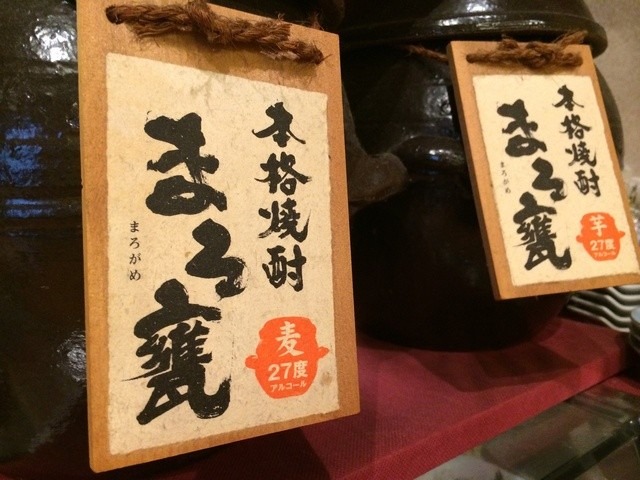 本格焼酎
まろ甕
まろがめ
麦
27度
アルコール
本格焼酎
まろ甕
まろがめ
芋
27度
アルコール